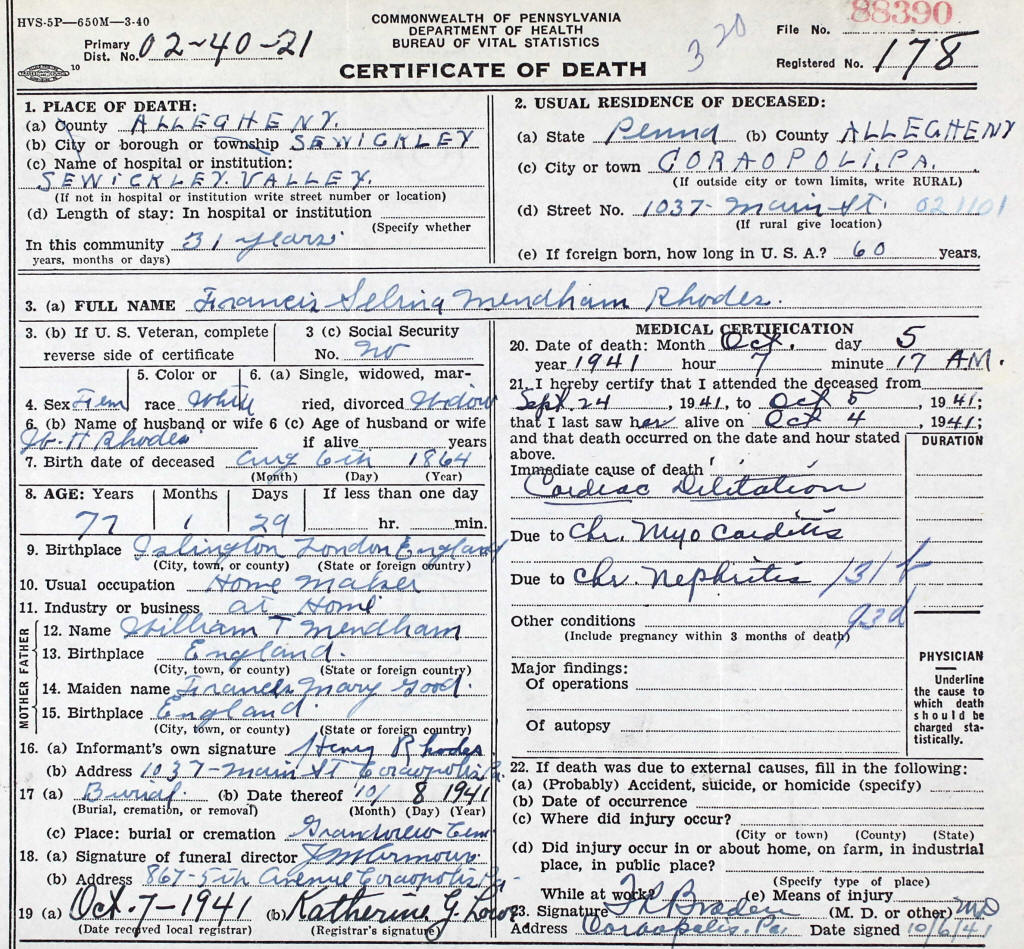 HVS-5P—650M—3-40
COMMONWEALTH OF PENNSYLVANIA
DEPARTMENT OF HEALTH
BUREAU OF VITAL STATISTICS
CERTIFICATE OF DEATH
Primary Dist. No. 02-40-21
10
3 20
File No. 88390
Registered No. 178
1. PLACE OF DEATH:
(a) County ALLEGHENY.
(b) City or borough or township SEWICKLEY
(c) Name of hospital or institution:
SEWICKLEY. VALLEY.
(If not in hospital or institution write street number or location)
(d) Length of stay: In hospital or institution
(Specify whether
In this community 31 years.
years, months or days)
2. USUAL RESIDENCE OF DECEASED:
(a) State Penna (b) County ALLEGHENY
(c) City or town CORAOPOLI. PA.
(If outside city or town limits, write RURAL)
(d) Street No. 1037- Main St. 021101
(If rural give location)
(e) If foreign born, how long in U. S. A.? 60 years.
3. (a) FULL NAME Francis Selina Mendham Rhodes.
3. (b) If U. S. Veteran, complete reverse side of certificate
3 (c) Social Security No. no
4. Sex Fem
5. Color or race White
6. (a) Single, widowed, married, divorced Widow
6. (b) Name of husband or wife W. H Rhodes
6 (c) Age of husband or wife if alive years
7. Birth date of deceased Aug 6th 1864
(Month) (Day) (Year)
8. AGE: Years Months Days If less than one day
77 1 29 hr. min.
9. Birthplace Islington London England
(City, town, or county) (State or foreign country)
10. Usual occupation Home Maker
11. Industry or business at Home
FATHER
12. Name William T Mendham
13. Birthplace England.
(City, town, or county) (State or foreign country)
MOTHER
14. Maiden name Frances Mary Good.
15. Birthplace England.
(City, town, or county) (State or foreign country)
16. (a) Informant's own signature Henry Rhodes
(b) Address 1037-Main St Coraopolis Pa.
17 (a) Burial. (b) Date thereof 10/ 8 1941
(Burial, cremation, or removal) (Month) (Day) (Year)
(c) Place: burial or cremation Grandview Cem
18. (a) Signature of funeral director
(b) Address 867-5th Avenue Coraopolis Pa-
19 (a) Oct. 7-1941 (b) Katherine G. Lowe
(Date received local registrar) (Registrar's signature)
MEDICAL CERTIFICATION
20. Date of death: Month Oct. day 5
year 1941 hour 7 minute 17 AM.
21. I hereby certify that I attended the deceased from
Sept. 24, 1941, to Oct 5 1941;
that I last saw her alive on Oct 4, 1941;
and that death occurred on the date and hour stated above.
DURATION
Immediate cause of death
Cardiac Dilitation
Due to Chr. Myo Carditis
Due to Chr. Nephritis 131 b
93d
Other conditions
(Include pregnancy within 3 months of death)
Major findings:
Of operations
Of autopsy
PHYSICIAN
Underline the cause to which death should be charged statistically.
22. If death was due to external causes, fill in the following:
(a) (Probably) Accident, suicide, or homicide (specify)
(b) Date of occurrence
(c) Where did injury occur?
(City or town) (County) (State)
(d) Did injury occur in or about home, on farm, in industrial place, in public place?
(Specify type of place)
While at work? (e) Means of injury
23. Signature Braden (M. D. or other) MD
Address Coraopolis. Pa. Date signed 10/6/41